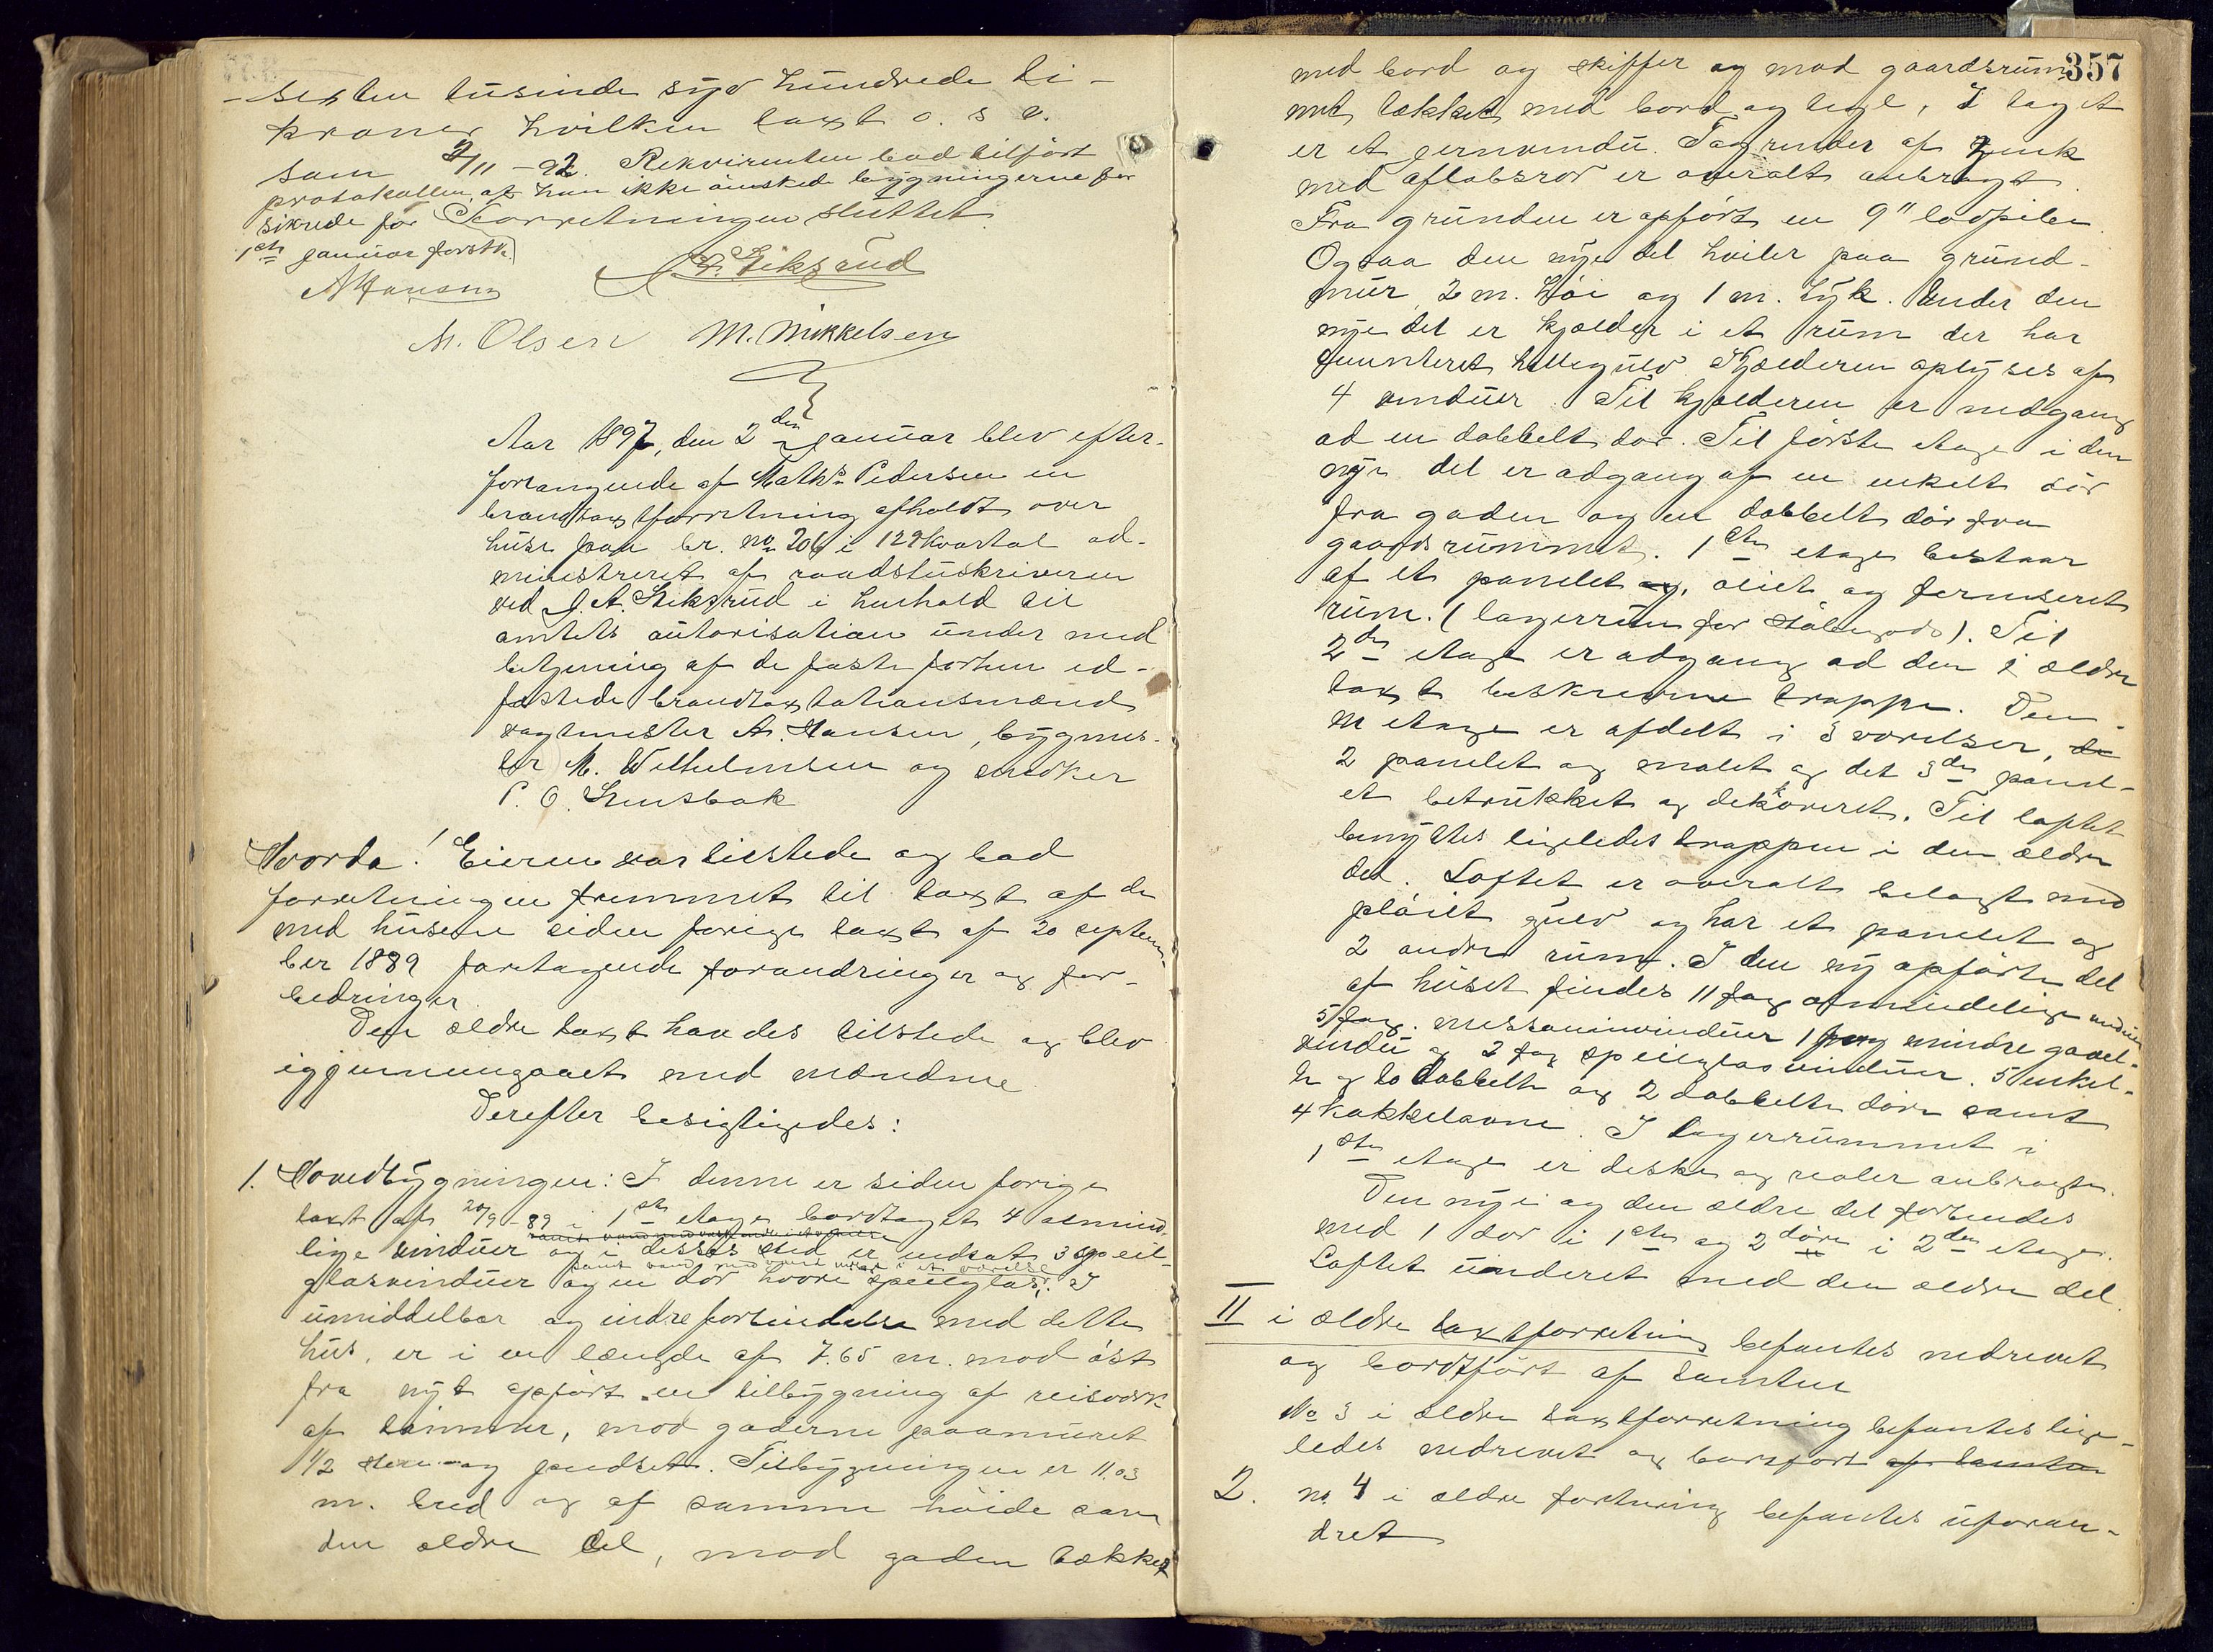 - sexten tusinde syv hundrede ti -
kroner hvilken taxt o. s v.
som 2/11 - 92. Rekvirenten bad tilført
protokollen, at han ikke ønskede bygningerne for
sikrede før Forretningen sluttet
1ste januar førstk.
A Hansen
M. Olsen M. Mikkelsen
Aar 1897, den 2den januar blev efter-
forlangende af Maths Pedersen en
brandtaxtforretning afholdt over
huse paa br. no 206 i 129 kvartal ad-
ministreret af raadstuskriveren
ved J. A. Eiksrud i henhold til
amtets autorisation under med
betjening af de faste forhen ed-
fæstede brandtaxtationsmænd
vagtmester A. Hansen, bygmes-
ter M. Wilhelmsen og snedker
P. O. Stensbak
Hvorda! Eieren var tilstede og bad
forretningen fremmet til taxt af de
med husene siden forige taxt af 20 septem
ber 1889 foretagende forandringer og for-
bedringer
Den ældre taxt havdes tilstede og blev
igjennemgaaet med mændene
Derefter besigtigedes:
1. Hovedbygningen: I denne er siden forige
taxt af 20/9-89 i 1ste etage bordtaget 4 almind
lige vinduer og i disses sted er indsat 3 speil-
glasvinduer og en dør hvori speilglas. I
umiddelbar og indre forbindelse med dette
hus, er i en længde af 7.65 m. mod øst
fra nyt opført en tilbygning af reisverk
af tømmer, mod gaderne paamuret
1/2 sten og pudset. Tilbygningen er 11.03
m. bred og af samme høide som
den ældre del, mod gaden tækket
357
med bord og skiffer og mod gaardsrum
met tækket med bord og tegl, I taget
er et jernvindu. Tagrender af zink
med afløbsrør er overalt anbragt.
Fra grunden er opført en 9" lodpibe
Ogsaa den nye del hviler paa grund-
mur, 2 m. høi og 1 m. tyk. Under den
nye del er kjælder i et rum der har
sementeret hellegulv. Kjælderen oplyses af
4 vinduer. Til kjælderen er nedgang
ad en dobbelt dør. Til første etage i den
nye del er adgang af en enkelt dør
fra gaden og en dobbelt dør fra
gaardsrummet. 1ste etage bestaar
af et panelet og, oliet og ferniseret
rum. (lagerrum for støbegods). Til
2den etage er adgang ad den i ældre
taxt beskrevne trappe. Den-
ne etage er afdelt i 3 værelser, de
2 panelet og malet og det 3die panel-
et betrukket og dekoreret. Til loftet
benyttes ligeledes trappen i den ældre
del. Loftet er overalt belagt med
pløiet gulv og har et panelet og
2 andre rum. I den ny opførte del
af huset findes 11 fag almindelige vinduer
5 fag messaninvinduer 1 fag mindre gavel-
vindu og 2 fag speilglasvinduer. 5 enkel-
te og to dobbelte og 2 dobbelte døre samt
4 kakkelovne. I lagerrummet i
1ste etage er diske og realer anbragte.
Den nye og den ældre del forbindes
med 1 dør i 1ste og 2 døre i 2den etage.
Loftet under et med den ældre del.
II i ældre taxtforretning befantes nedrevet
og bordtført af tomten
No 3 i ældre taxtforretning befantes lige-
ledes nedrevet og bortført af tomten
2. no. 4 i ældre forretning befantes uforan-
dret